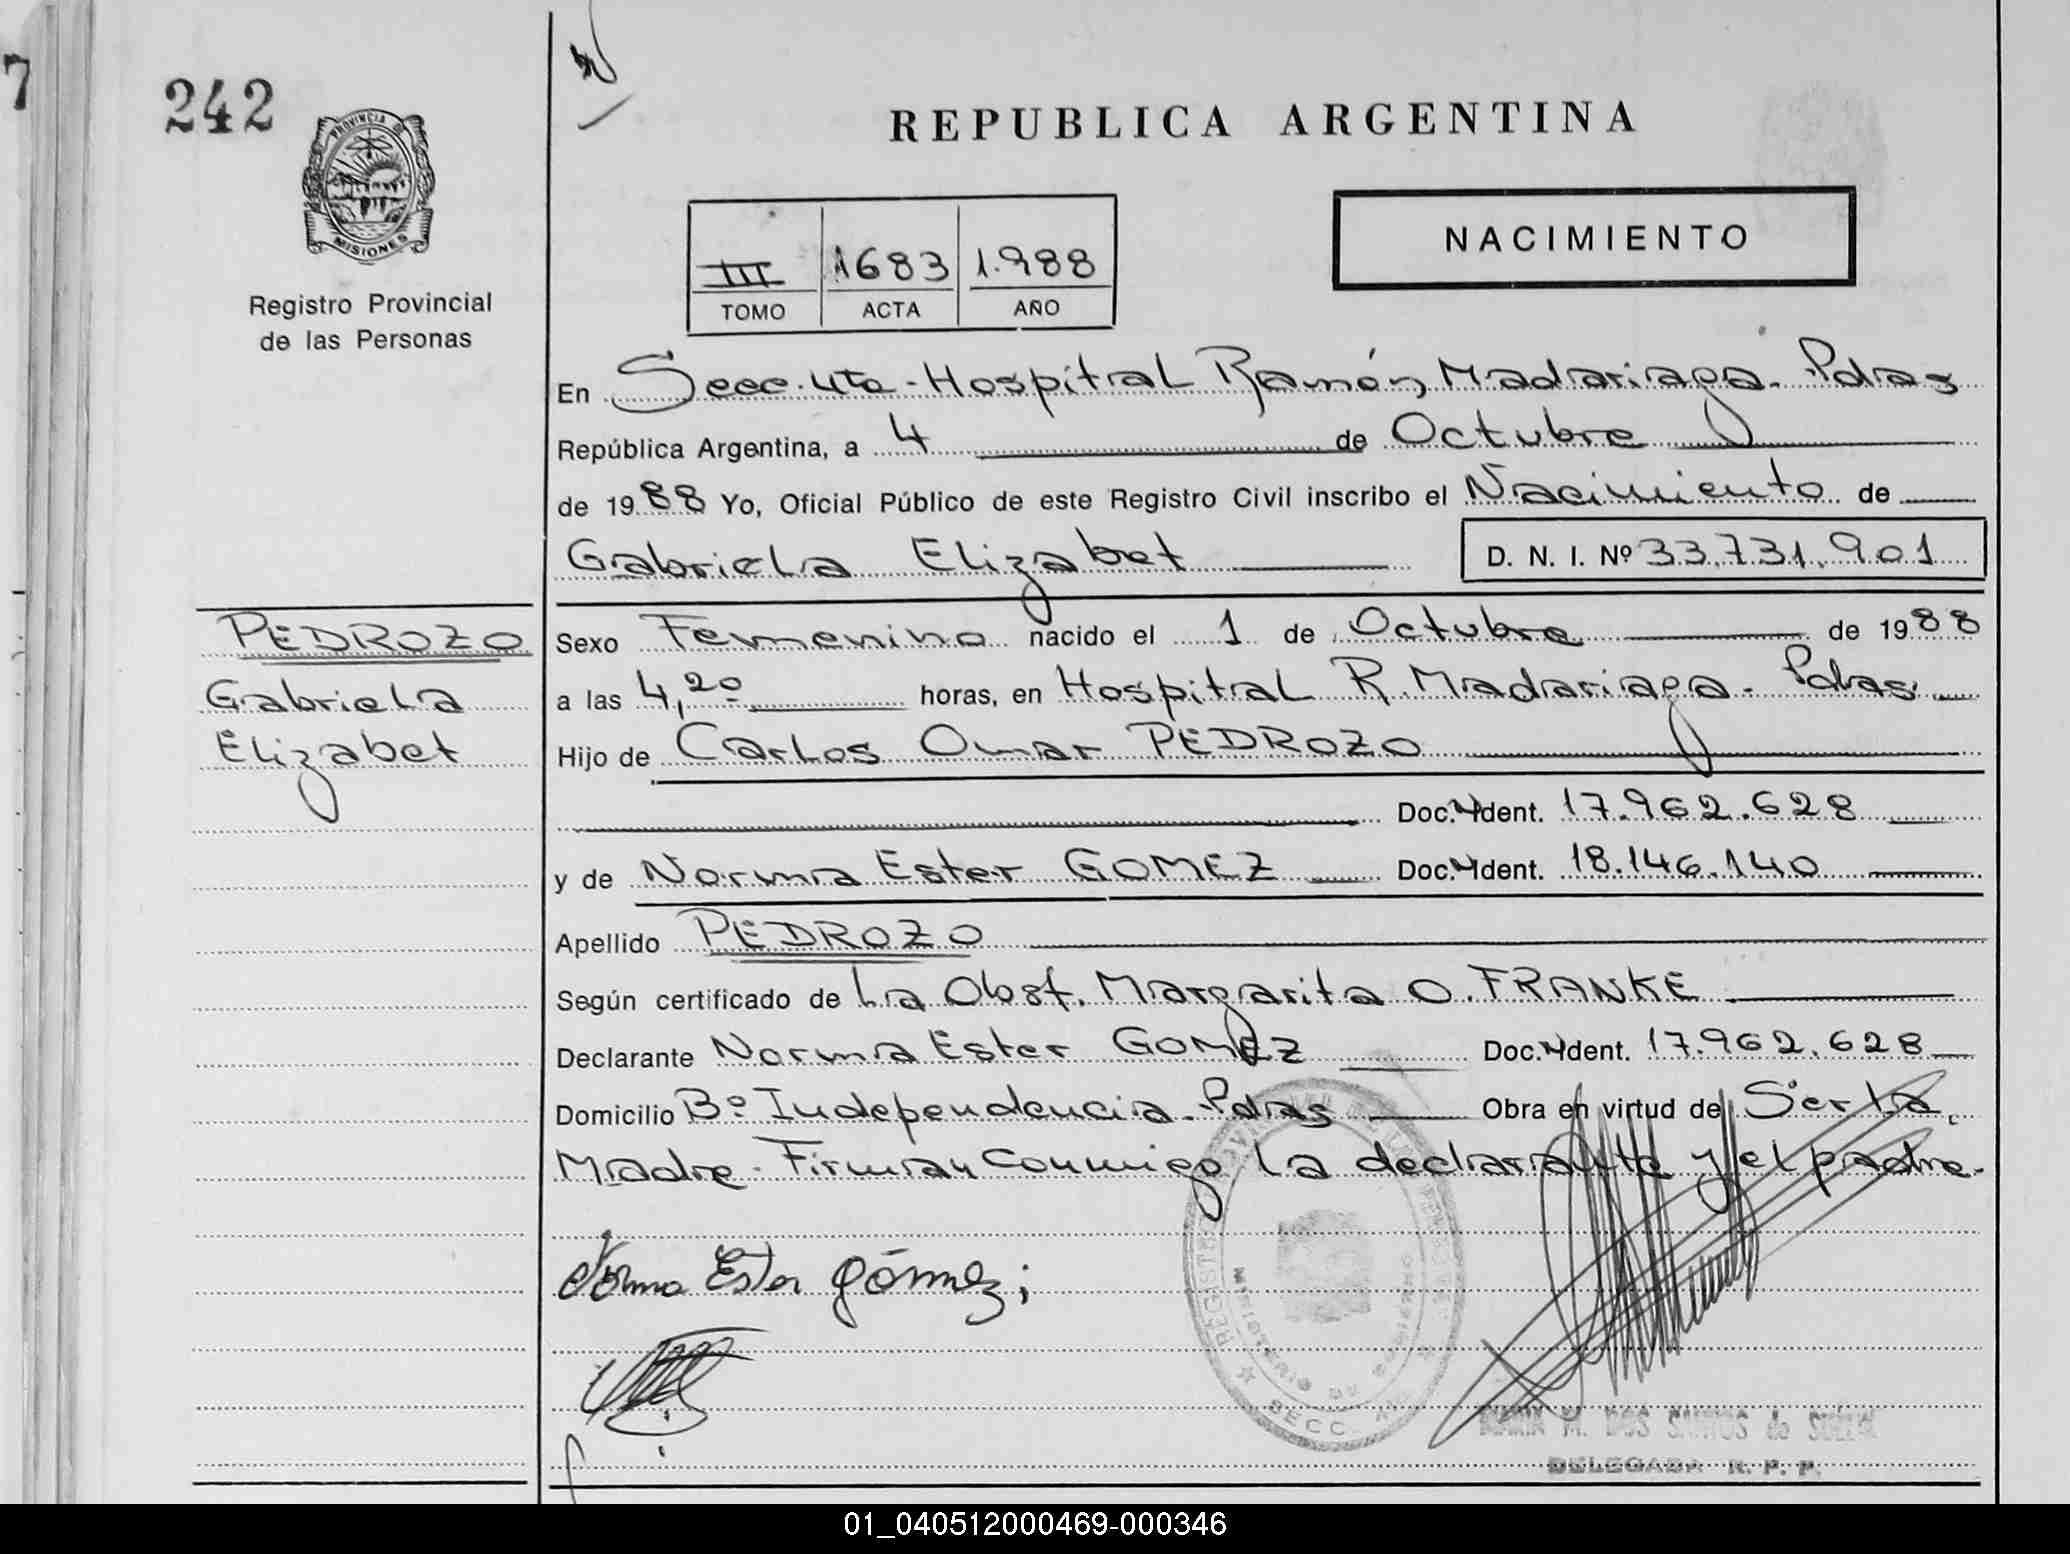 7
242
PROVINCIA DE
MISIONES
Registro Provincial
de las Personas
REPUBLICA ARGENTINA
III 1683 1.988
TOMO ACTA AÑO
NACIMIENTO
En Secc. 4ta - Hospital Ramón Madariaga - Pdas
República Argentina, a 4 de Octubre
de 1988 Yo, Oficial Público de este Registro Civil inscribo el Nacimiento de
Gabriela Elizabet D. N. I. Nº 33.731.901
PEDROZO
Gabriela
Elizabet
Sexo Femenino nacido el 1 de Octubre de 1988
a las 4,20 horas, en Hospital R. Madariaga - Pdas
Hijo de Carlos Omar PEDROZO
Doc. Ident. 17.962.628
y de Norma Ester GOMEZ Doc. Ident. 18.146.140
Apellido PEDROZO
Según certificado de La Obst. Margarita O. FRANKE
Declarante Norma Ester GOMEZ Doc. Ident. 17.962.628
Domicilio Bº Independencia - Pdas Obra en virtud de Ser la
Madre - Firman Conmigo la declarante y el padre.
Norma Ester Gómez;
REGISTRO
MINISTERIO DE GOBIERNO
SECC.
MARIA M. DOS SANTOS de
DELEGADA R. P. P.
01_040512000469-000346